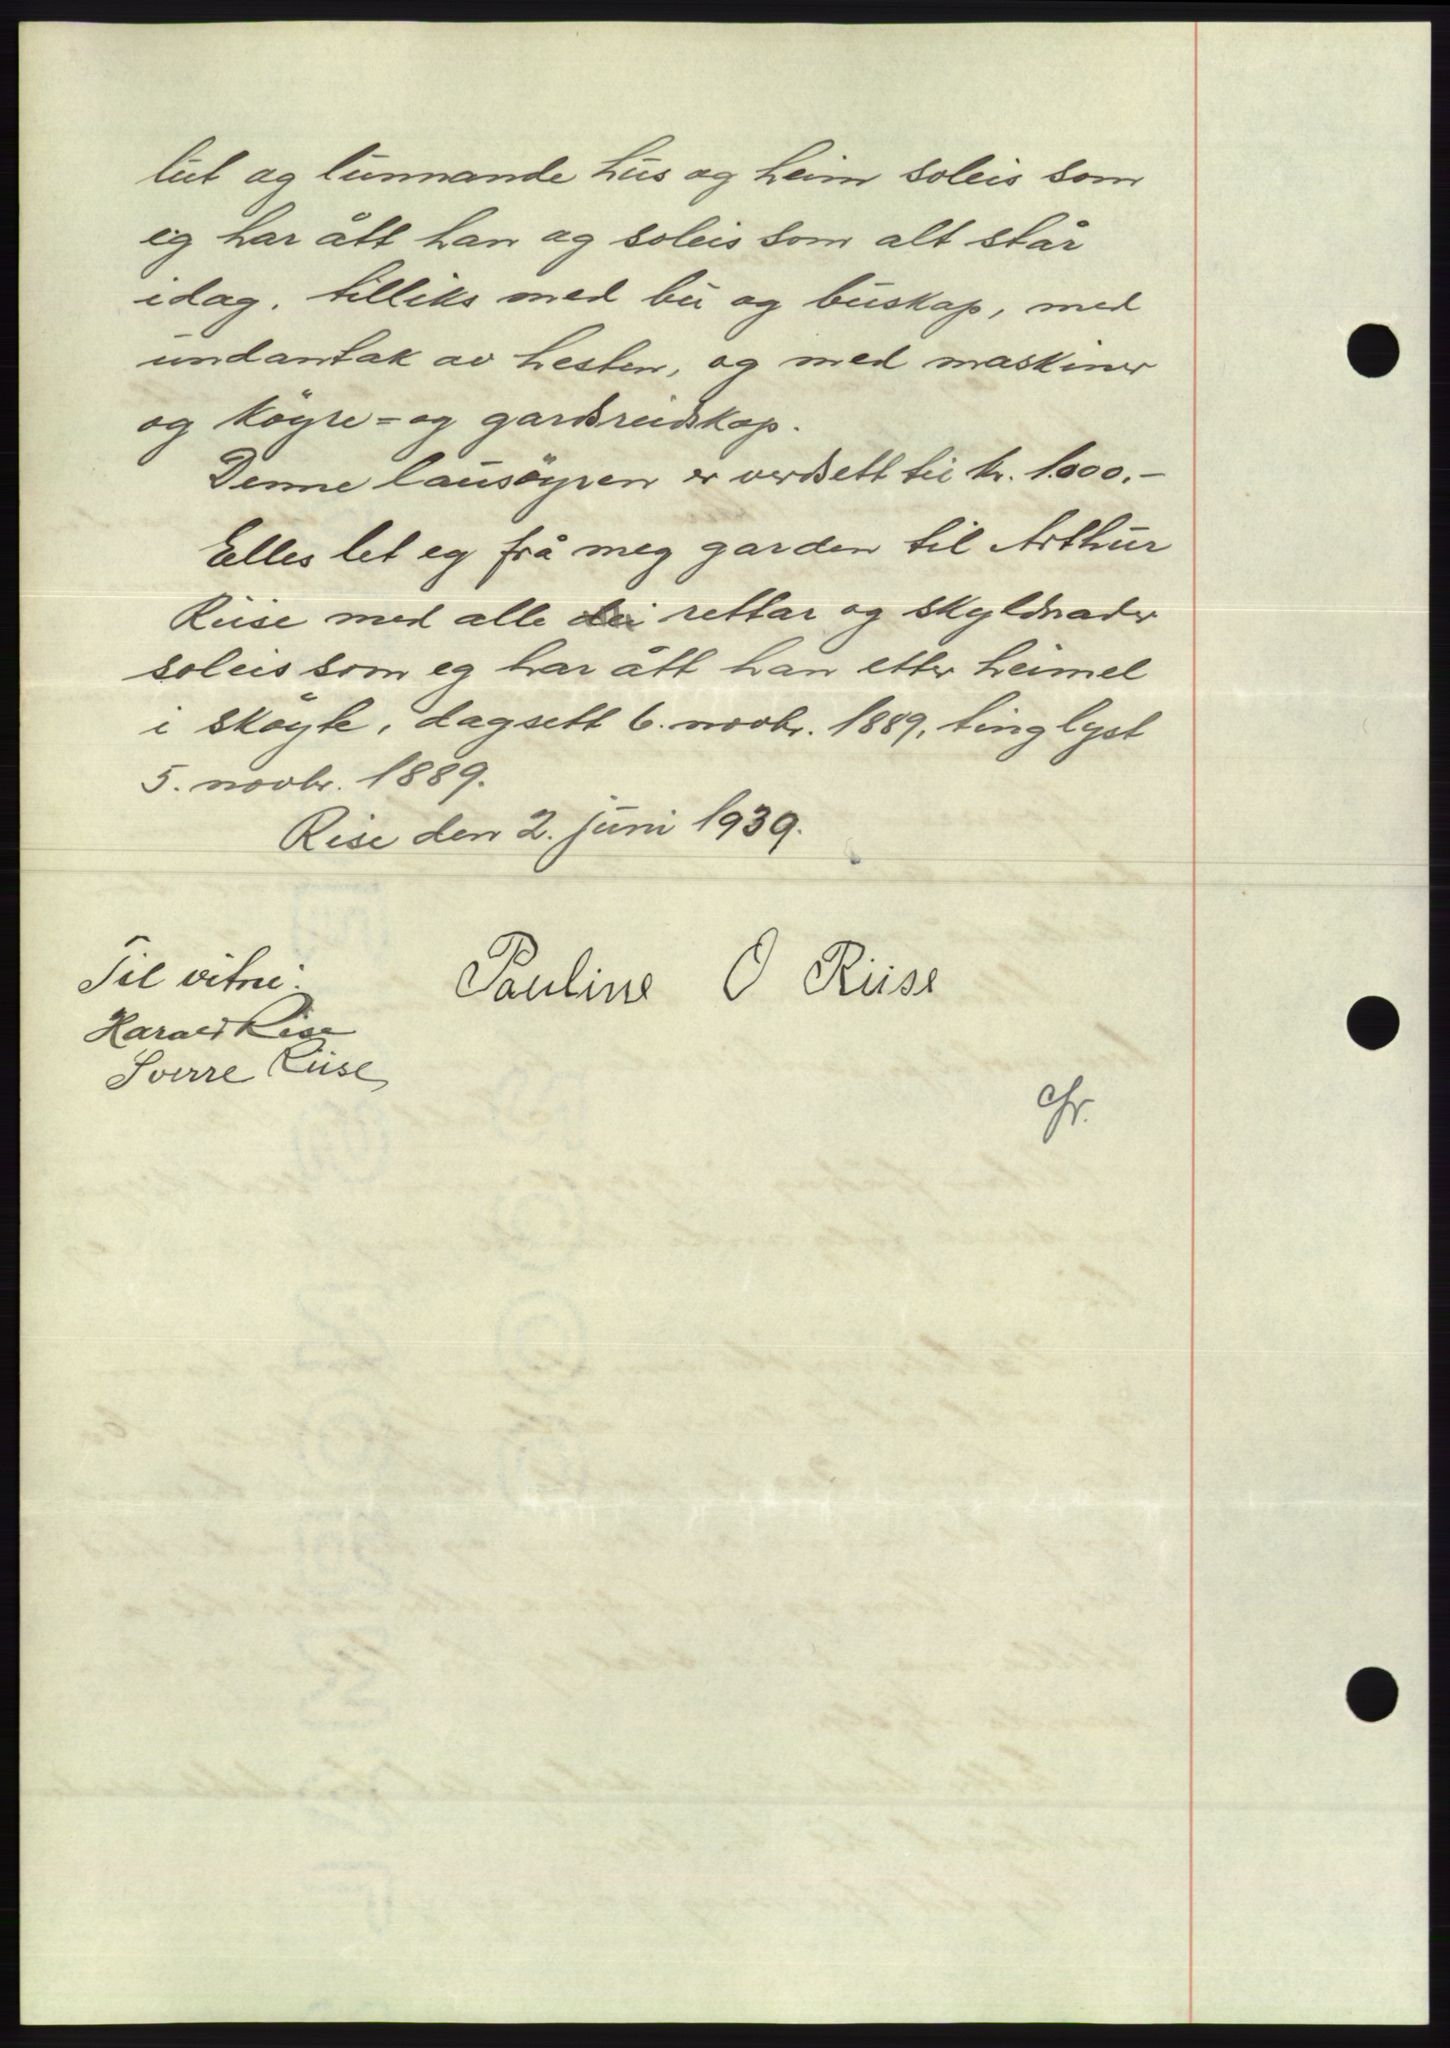 lut og lunnande hus og heim soleis som
eig har ått han og soleis som alt står
idag, tilliks med bu og buskap, med
undantak av hesten, og med maskiner
og köyre- og gardsreidskap.
Denne lausöyren er verdsett til kr. 1.000.-
Elles let eg frå meg garden til Arthur
Riise med alle dei rettar og skyldnader
soleis som eg har ått han etter heimel
i sköyte, dagsett 6. novbr. 1889, tinglyst
5. novbr. 1889.
Rise den 2. juni 1939.
Til vitne: Pauline O Riise
Harald Rise
Sverre Riise